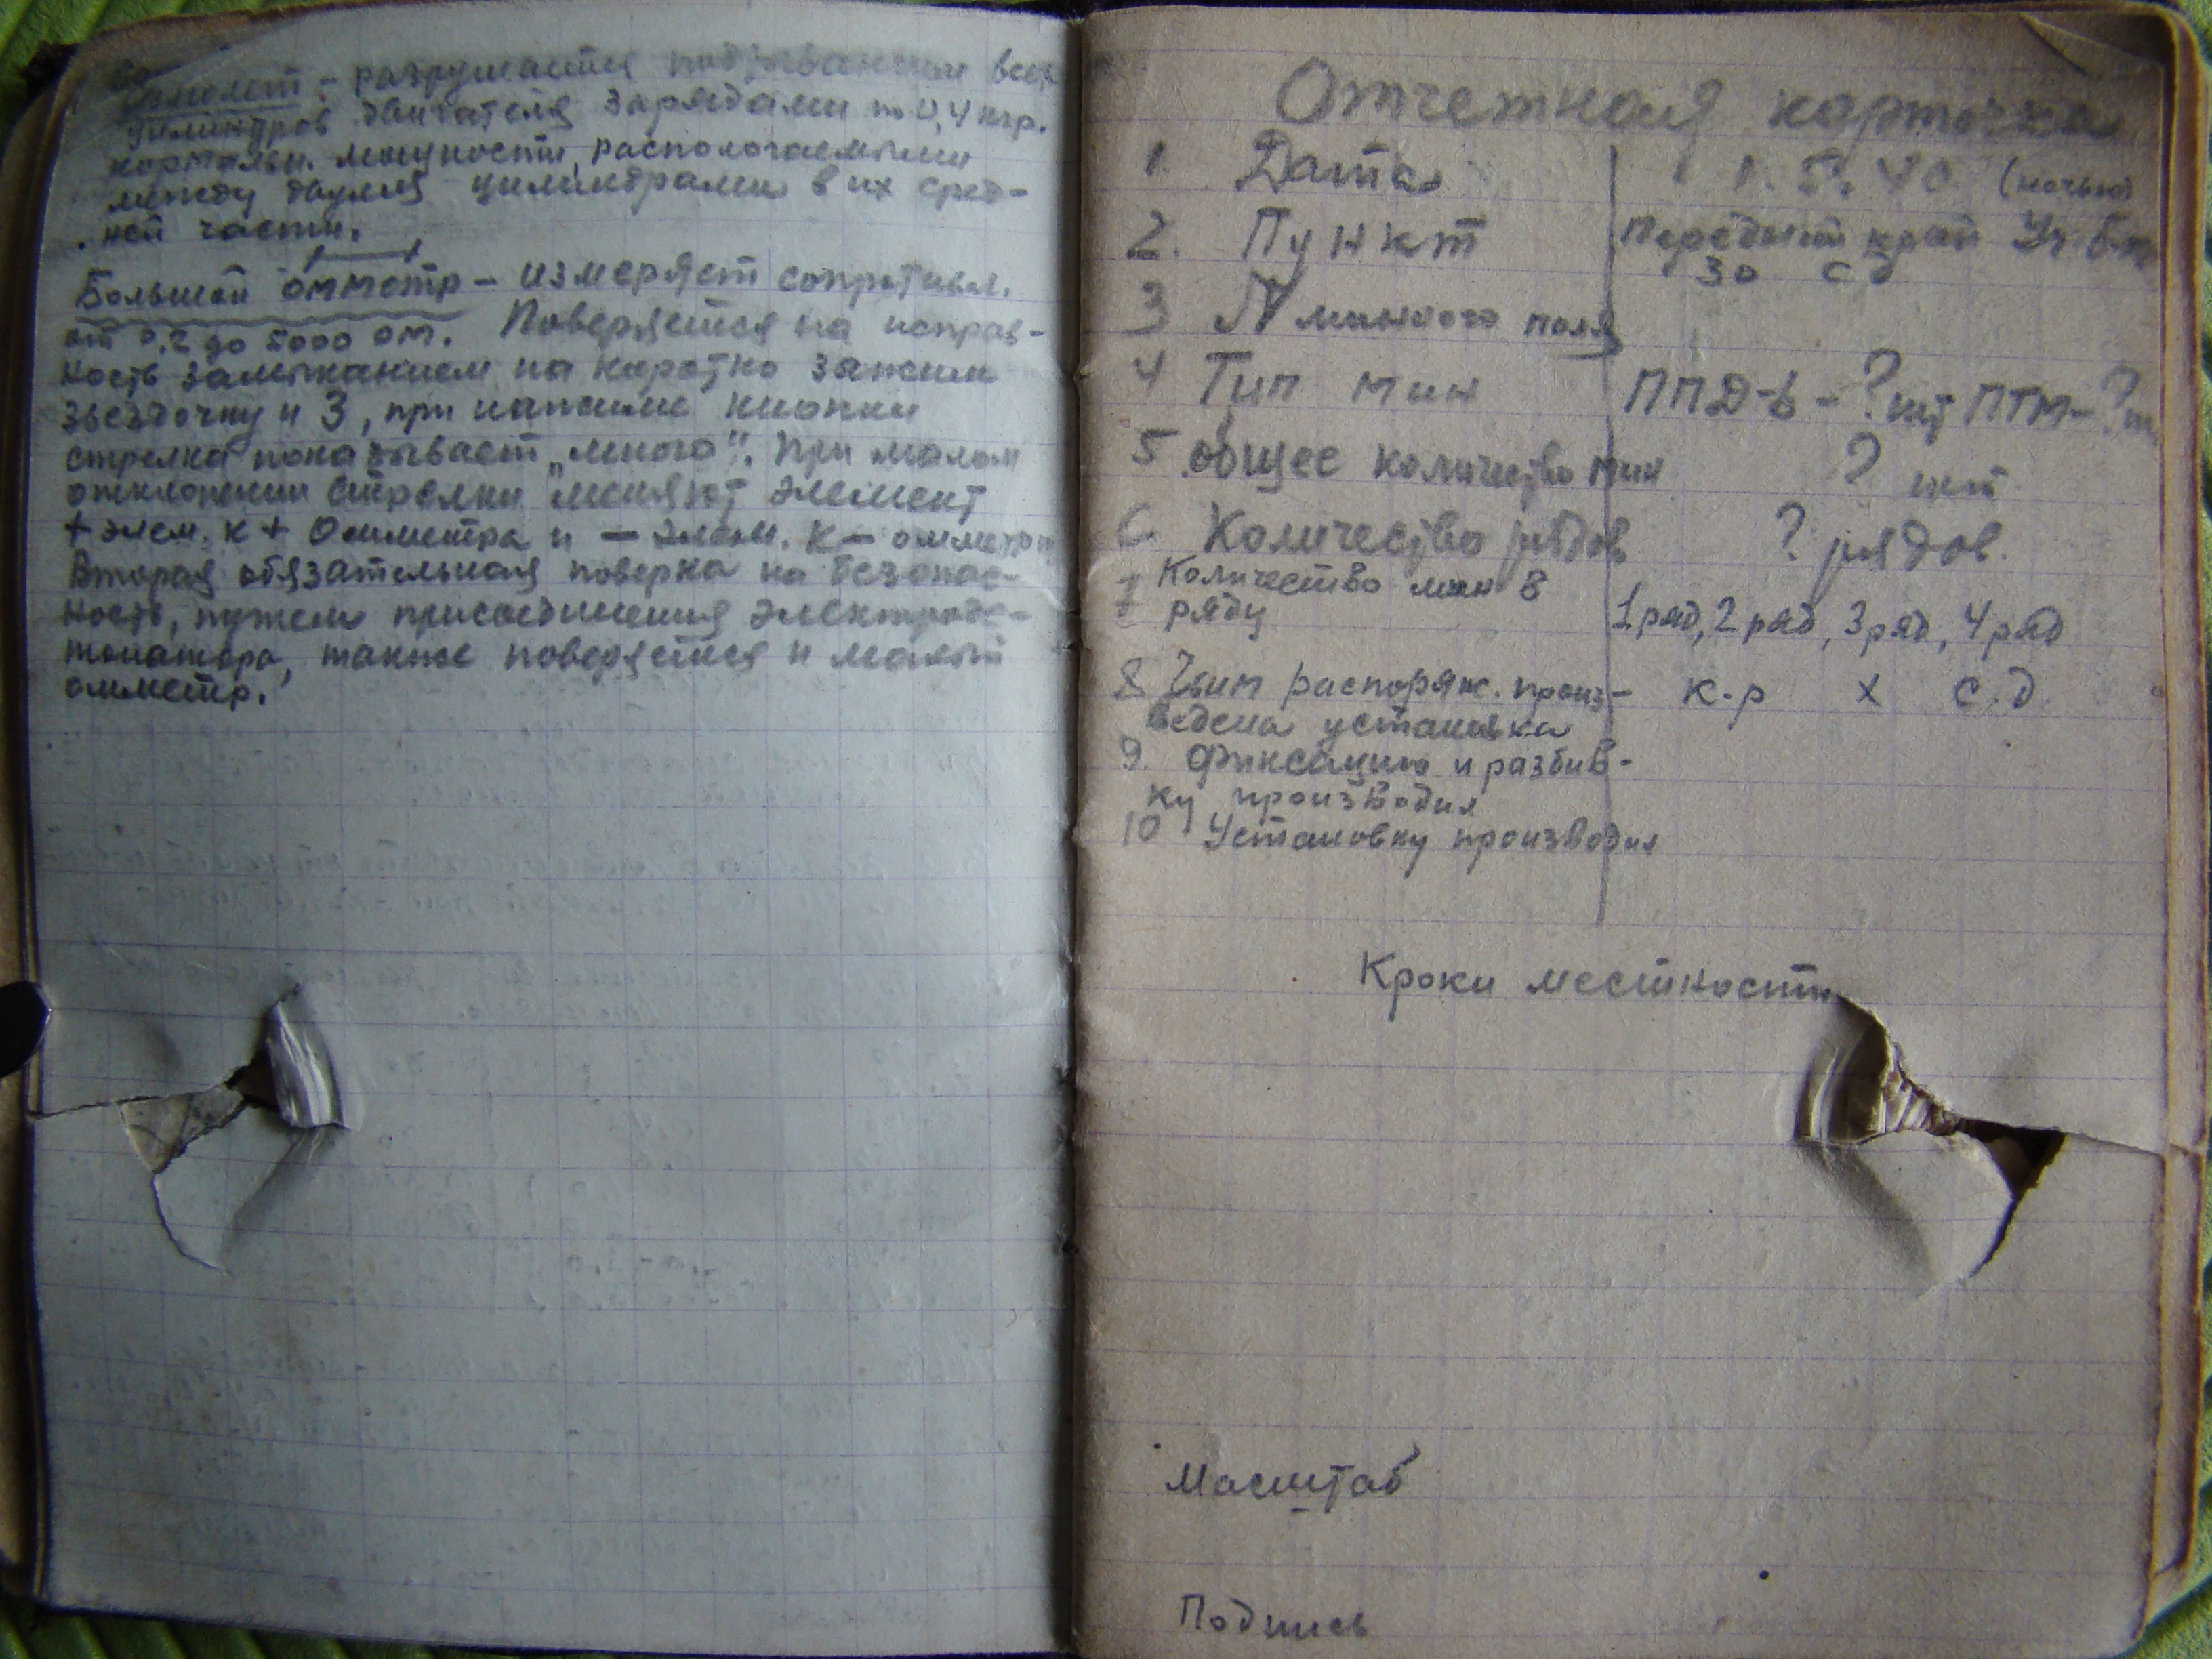 Самолет - разрушается подрыванием всех
цилиндров двигателя зарядами по 0,4 кгр.
нормальн. мощности, распологаемыми
между двумя цилиндрами в их сред-
ней части.
Большой омметр - измеряет сопротивл.
от 0,2 до 5000 ом. Поверяется на исправ-
ность замыканием на коротко зажим
звездочку и 3, при нажиме кнопки
стрелка показывает "много". При малом
отклонении стрелки меняют элемент
+ элем. к + Омметра и - элем. к - омметра
Вторая обязательная поверка на безопас-
ность, путем присоединения электроде-
тонатора, также поверяется и малый
омметр.
Отчетная карточка
1. Дата (ночью)
2. Пункт Передний край Уч. Б-на
30 сд
3 № минного поля
4 Тип мин ППД-6 - ? шт ПТМ - ? ш
5 общее количество мин ? шт
6 Количество рядов ? рядов.
7 Количество мин в
ряду 1 ряд, 2 ряд, 3 ряд, 4 ряд
8 Чьим распоряж. произ- к-р х с.д.
ведена установка
9. Фиксацию и разбив-
ку производил
10 Установку производил
Кроки местности
Масштаб
Подпись